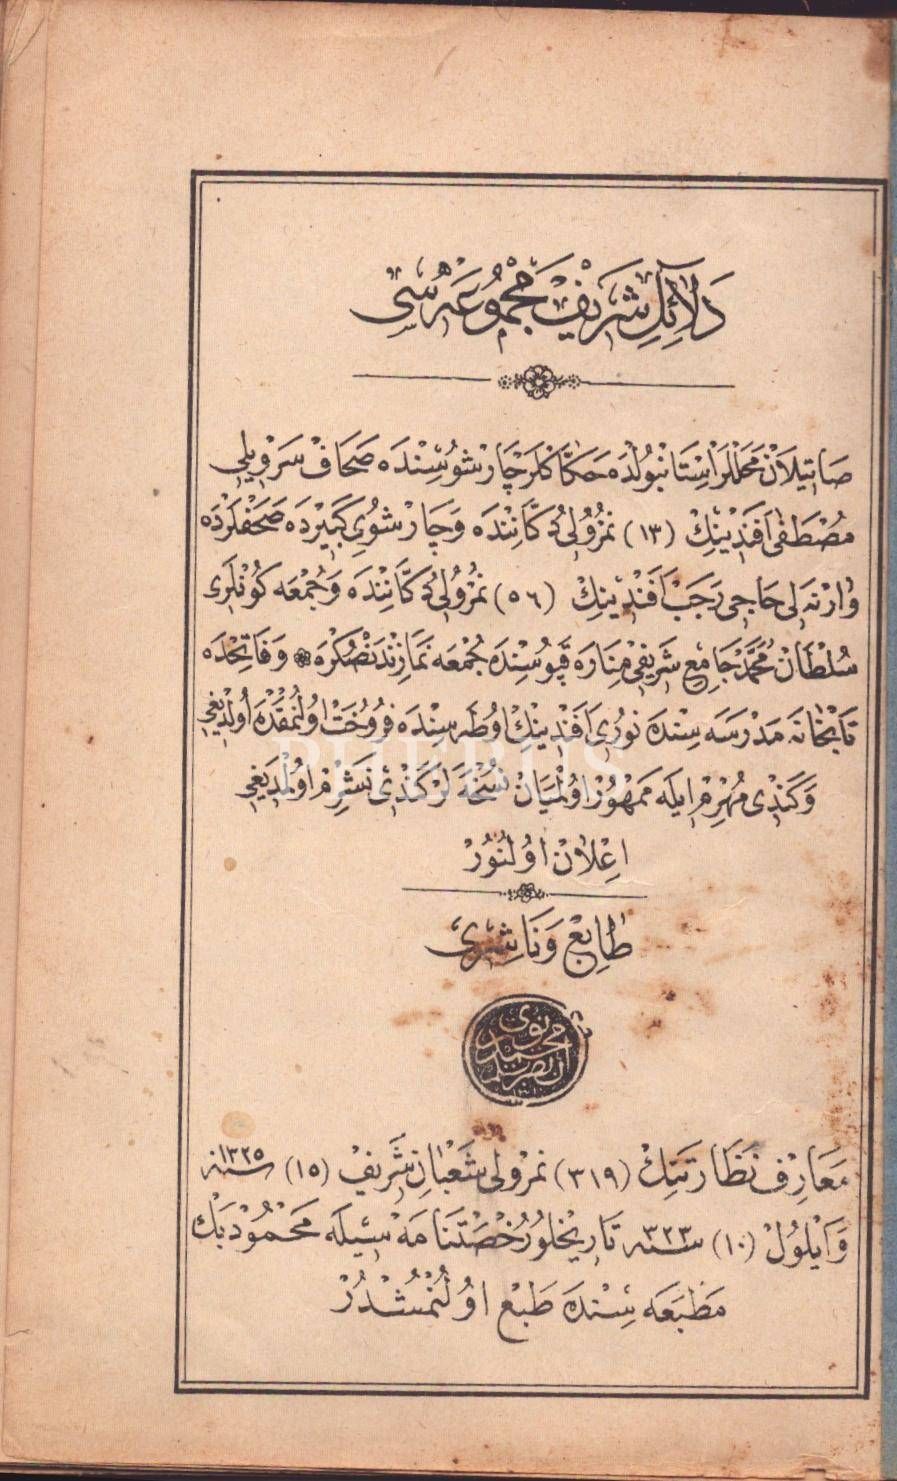 دَلَائِلِ شَرِيفْ مَجْمُوعَهْ سِی
صَاتِيلَانْ مَحَلْلَرْ اِسْتَانْبُولْدَه حَكَّاكْلَرْ چَارْشُوسِنْدَه صَحَافْ سَرْوِيلِی
مُصْطَفٰی اَفَنْدِينِكْ (١٣) نُمْرُولِی دُكَّانِنْدَه وَ چَارْشُویِ كَبِيرْدَه صَحَفْلَرْدَه
وَارْنَه لِی حَاجِی رَجَبْ اَفَنْدِينِكْ (٥٦) نُمْرُولِی دُكَّانِنْدَه وَ جُمْعَه كُونْلَرِی
سُلْطَانْ مُحَمَّدْ جَامِعِ شَرِيفِی مِنَارَه قَپُوسِنْدَه جُمْعَه نَمَازِنْدَنْصُكْرَه ❁ وَ فَاتِحْدَه
تَابْخَانَه مَدْرَسَه سِنْدَه نُورِی اَفَنْدِينِكْ اوُطَه سِنْدَه فُرُوخْتْ اوُلُنْمَقْدَه اُولْدِيغِی
وَ كَنْدِی مُهْرِمْ اِيلَه مَمْهُورْ اوُلْمِيَانْ نُسْخَه لَرْ كَنْدِی نَشْرِمْ اوُلْمَدِيغِی
اِعْلَانْ اوُلُنُورْ
طَابِعْ وَ نَاشِرِی
مَعَارِفْ نَظَارَتِنِكْ (٣١٩) نُمْرُولِی شَعْبَانِ شَرِيفْ (١٥) سنه ١٣٢٥
وَ اَيْلُولْ (١٠) سنه ٣٢٣ تَارِيخْلُو رُخْصَتْنَامَه سِيلَه مَحْمُودْ بَكْ
مَطْبَعَه سِنْدَه طَبْعْ اوُلُنْمُشْدُرْ
PHEBUS